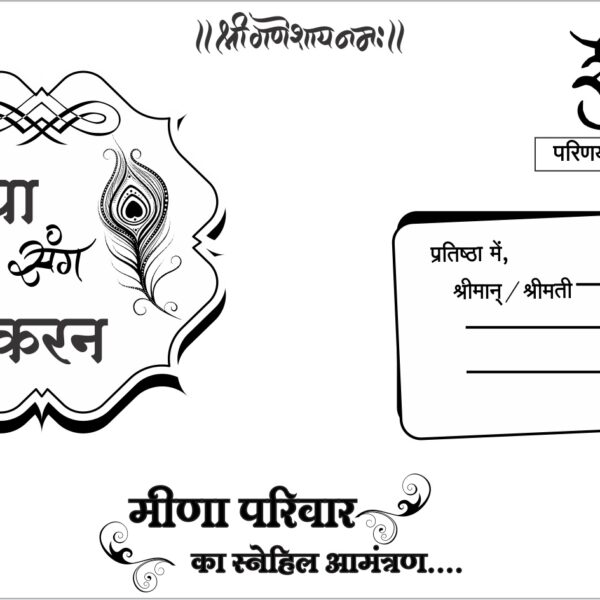 ||श्री गणेशाय नमः||
संग
करन
प्रतिष्ठा में,
श्रीमान् / श्रीमती
मीणा परिवार
का स्नेहिल आमंत्रण....